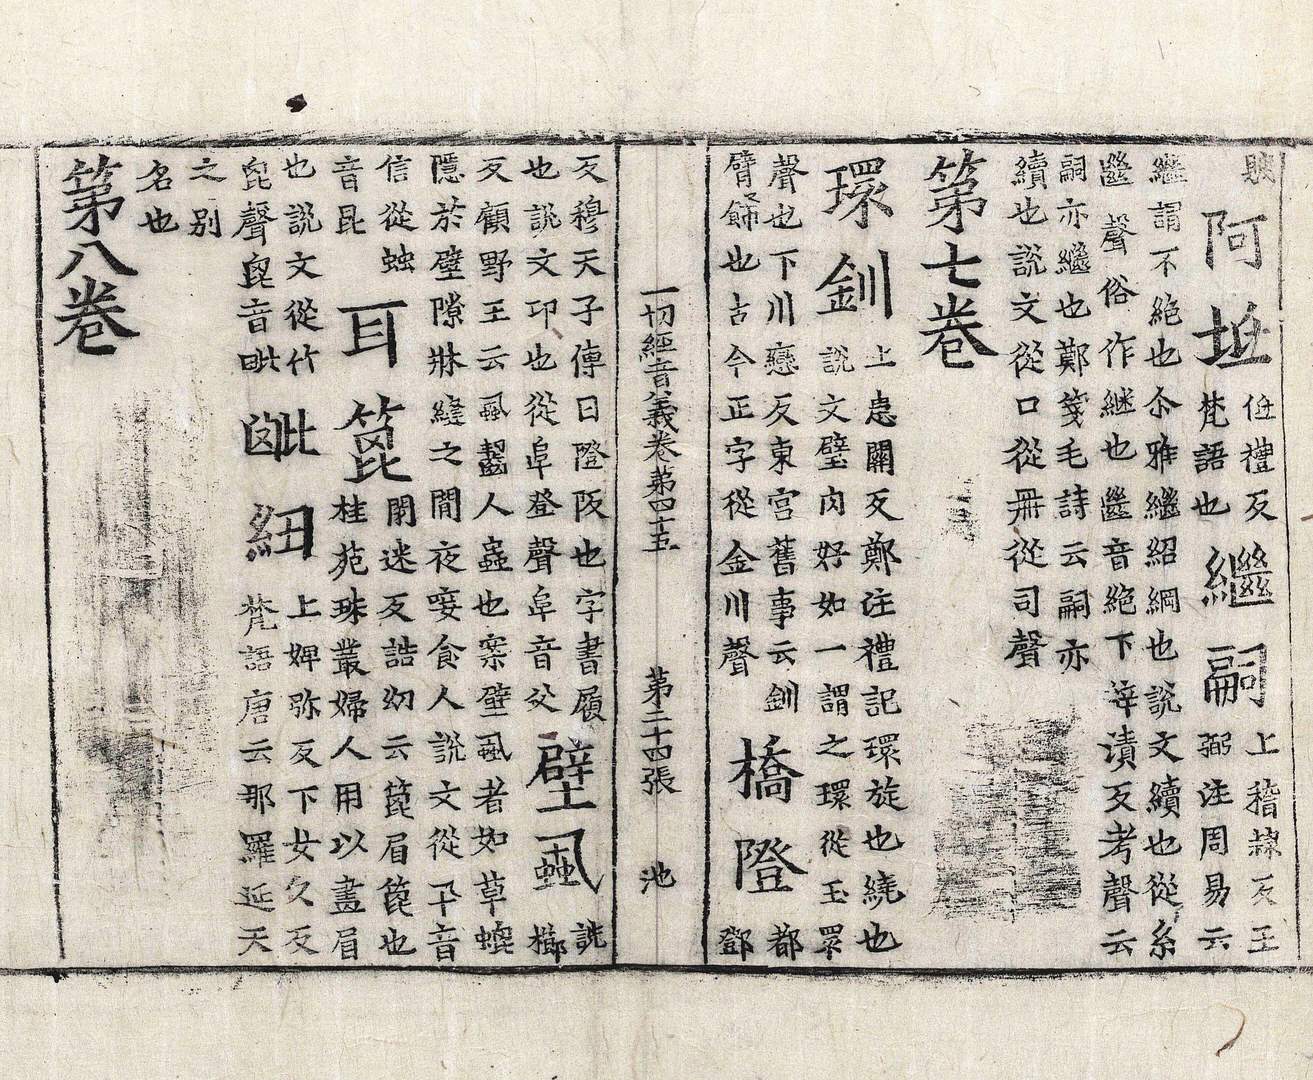 阿坻低禮反梵語也繼嗣上稽隸反王弼注周易云
繼謂不絕也尒雅繼紹綱也說文續也從糸
㡭聲俗作継也㡭音絕下辝漬反考聲云
嗣亦繼也鄭箋毛詩云嗣亦
續也說文從口從冊從司聲
第七卷
環釧上患關反鄭注禮記環旋也繞也
說文璧肉好如一謂之環從玉睘
聲也下川戀反東宮舊事云釧
臂飾也古今正字從金川聲橋隥都鄧
一切經音義卷第四十五 第二十四張 池
反穆天子傳曰隥阪也字書履
也說文卬也從阜登聲阜音父壁虱詵櫛
反顧野王云虱齧人蟲也案壁虱者如草螕
隱於壁隙牀縫之間夜㗲食人說文從卂音
信從䖵音昆耳篦閉迷反誥幼云篦眉篦也
桂苑珠叢婦人用以畫眉
也說文從竹毘聲毘音毗毗紐上婢弥反下女久反
梵語唐云那羅延天
之別
名也
第八卷